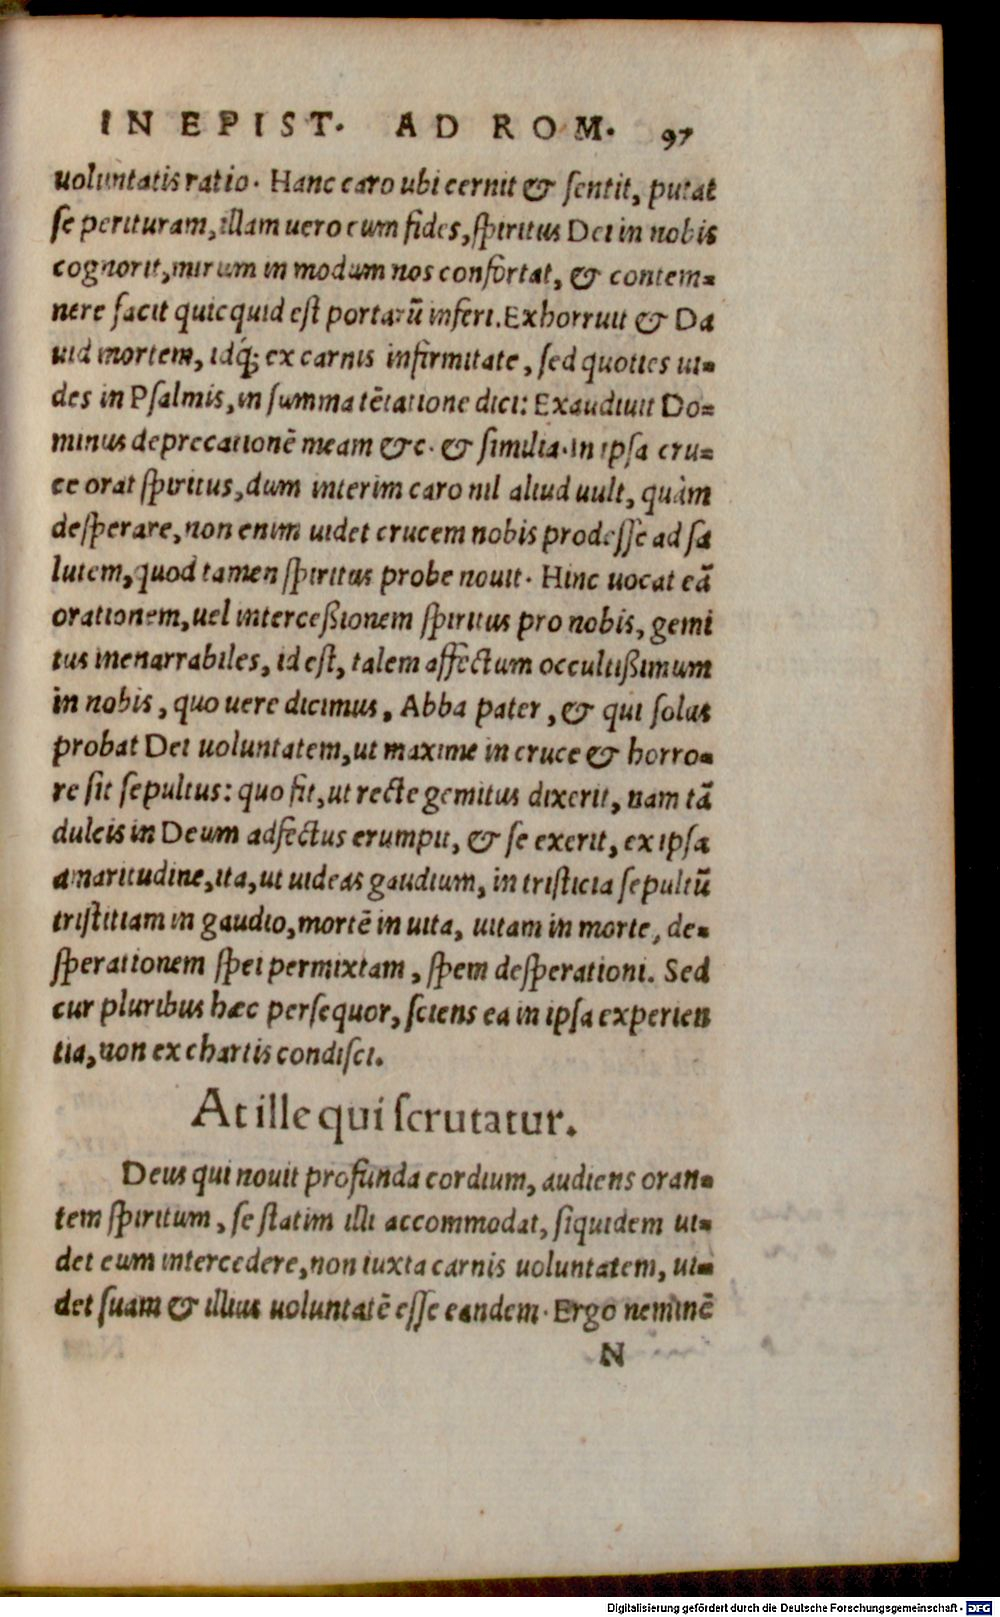 IN EPIST. AD ROM. 97
uoluntatis ratio. Hanc caro ubi cernit & sentit, putat
se perituram, illam uero cum fides, spiritus Dei in nobis
cognorit, mirum in modum nos confortat, & contem-
nere facit quicquid est portarū inferi. Exhorruit & Da
uid mortem, idq́; ex carnis infirmitate, sed quoties ui-
des in Psalmis, in summa tētatione dici: Exaudiuit Do-
minus deprecationē meam &c. & similia. in ipsa cru-
ce orat spiritus, dum interim caro nil aliud uult, quàm
desperare, non enim uidet crucem nobis prodesse ad sa
lutem, quod tamen spiritus probe nouit. Hinc uocat eā
orationem, uel interceßionem spiritus pro nobis, gemi
tus inenarrabiles, id est, talem affectum occultißimum
in nobis, quo uere dicimus, Abba pater, & qui solus
probat Dei uoluntatem, ut maxime in cruce & horro-
re sit sepultus: quo fit, ut recte gemitus dixerit, nam tā
dulcis in Deum adfectus erumpit, & se exerit, ex ipsa
amaritudine, ita, ut uideas gaudium, in tristicia sepultū
tristitiam in gaudio, mortē in uita, uitam in morte, de-
sperationem spei permixtam, spem desperationi. Sed
cur pluribus hæc persequor, sciens ea in ipsa experien
tia, non ex chartis condisci.
At ille qui scrutatur.
Deus qui nouit profunda cordium, audiens oran-
tem spiritum, se statim illi accommodat, siquidem ui-
det eum intercedere, non iuxta carnis uoluntatem, ui-
det suam & illius uoluntatē esse eandem. Ergo neminē
N
Digitalisierung gefördert durch die Deutsche Forschungsgemeinschaft - DFG